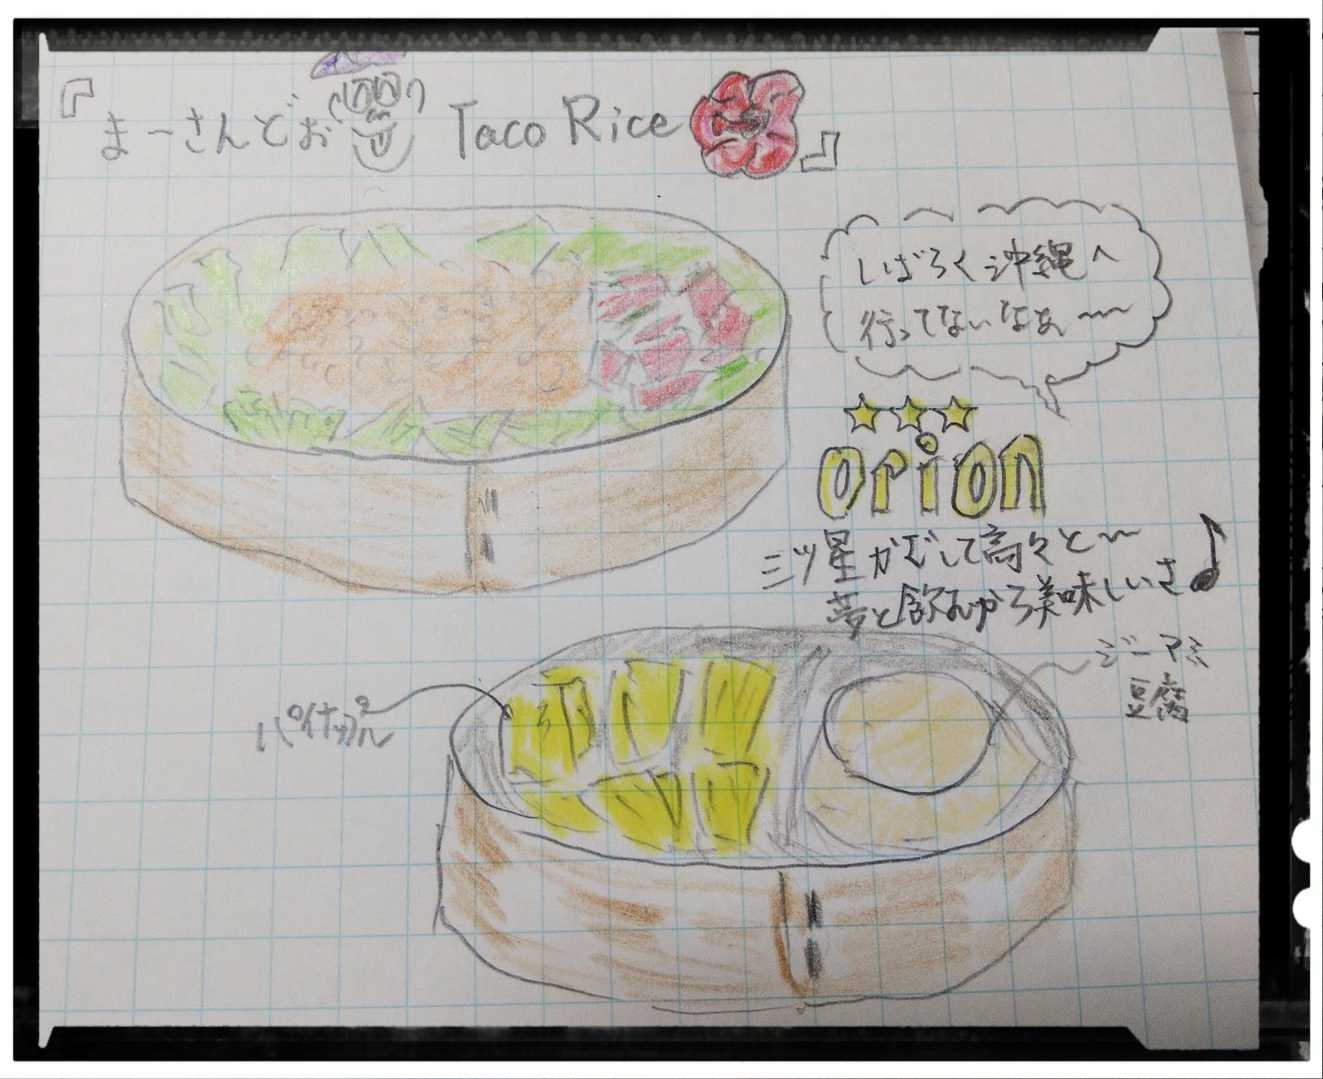 『まーさんどぉ Taco Rice』
しばらく沖縄へ
行ってないなぁ〜〜
orion
三ツ星かざして高々と〜
夢と飲むから美味しいさ♪
ジーマミ
豆腐
パイナップル